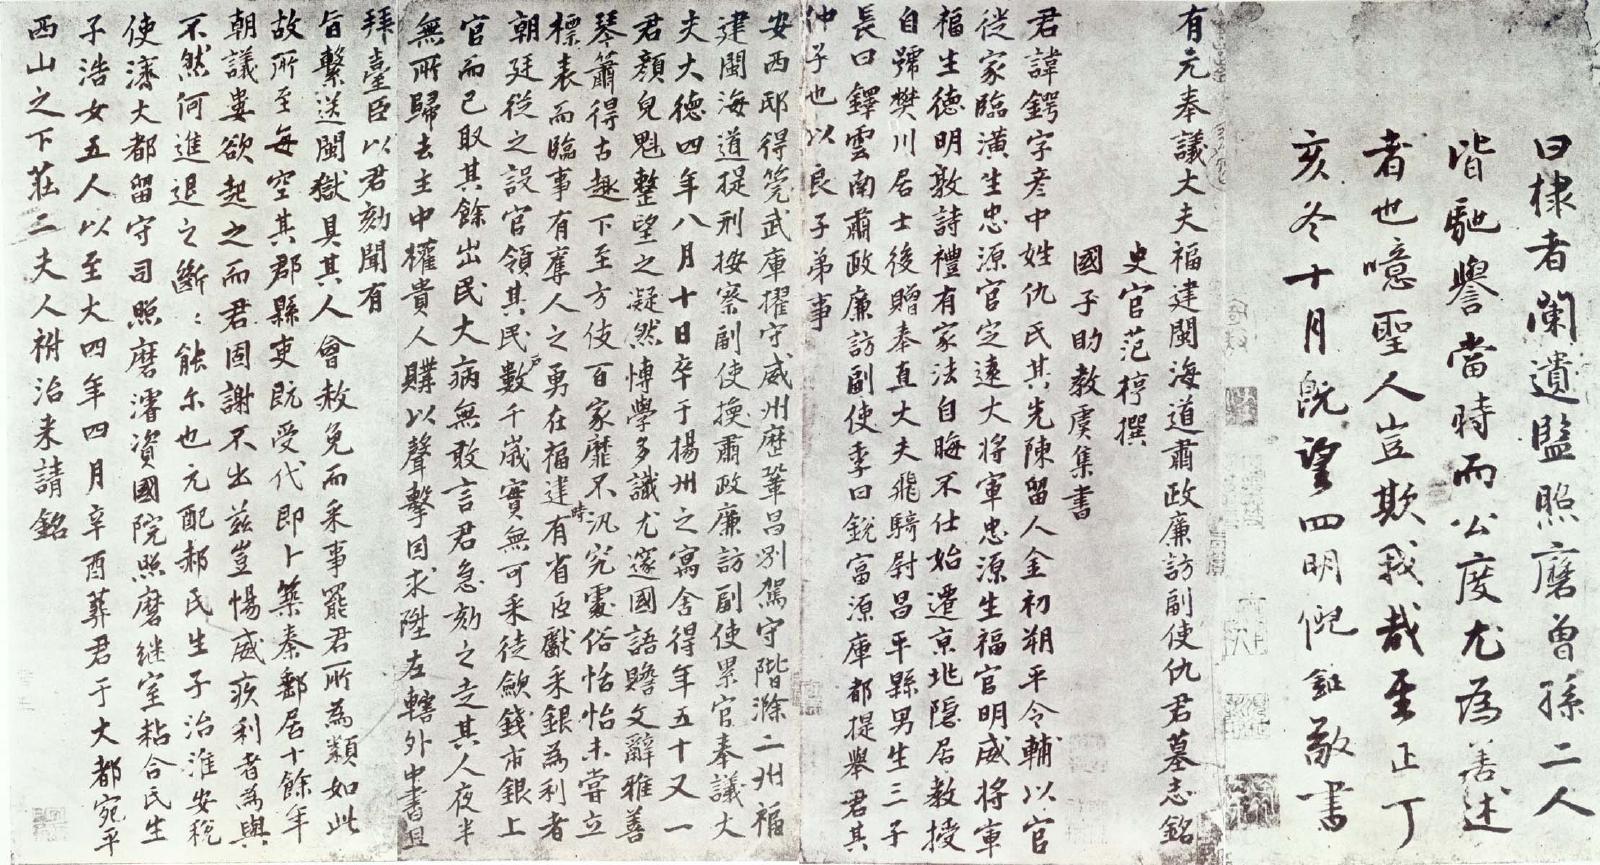 曰棣者闌遺監照磨曾孫二人
皆馳譽當時而公度尤為善述
者也噫聖人豈欺我哉至正丁
亥冬十月既望四明倪鉅敬書
有元奉議大夫福建閩海道肅政廉訪副使仇君墓志銘
史官范梈撰
國子助教虞集書
君諱鍔字彥中姓仇氏其先陳留人金初朔平令輔以官
從家臨潢生忠源官定遠大將軍忠源生福官明威將軍
福生德明敦詩禮有家法自晦不仕始遷京兆隱居教授
自號樊川居士後贈奉直大夫飛騎尉昌平縣男生三子
長曰鐸雲南肅政廉訪副使季曰銳富源庫都提舉君其
仲子也以良子弟事
安西邸得筦武庫擢守威州歷鞏昌別駕守階滁二州福
建閩海道提刑按察副使換肅政廉訪副使累官奉議大
夫大德四年八月十日卒于揚州之寓舍得年五十又一
君顏皃魁整望之凝然博學多識尤邃國語贍文辭雅善
琴簫得古趣下至方伎百家靡不汎究處俗恬怡未嘗立
標表而臨事有奪人之勇在福建時有省臣獻采銀為利者
朝廷從之設官領其民戶數千歲實無可采徒斂錢市銀上
官而已取其餘出民大病無敢言君急劾之走其人夜半
無所歸去主中權貴人購以聲擊因求陞左轄外中書且
拜臺臣以君劾聞有
旨繫送閩獄具其人會赦免而采事罷君所為類如此
故所至每空其郡縣吏既受代即卜築秦鄠居十餘年
朝議婁欲起之而君固謝不出茲豈惕威疚利者為與
不然何進退之斷斷能尒也元配郝氏生子治淮安稅
使濬大都留守司照磨濬資國院照磨继室粘合氏生
子浩女五人以至大四年四月辛酉葬君于大都宛平
西山之下莊二夫人祔治来請銘